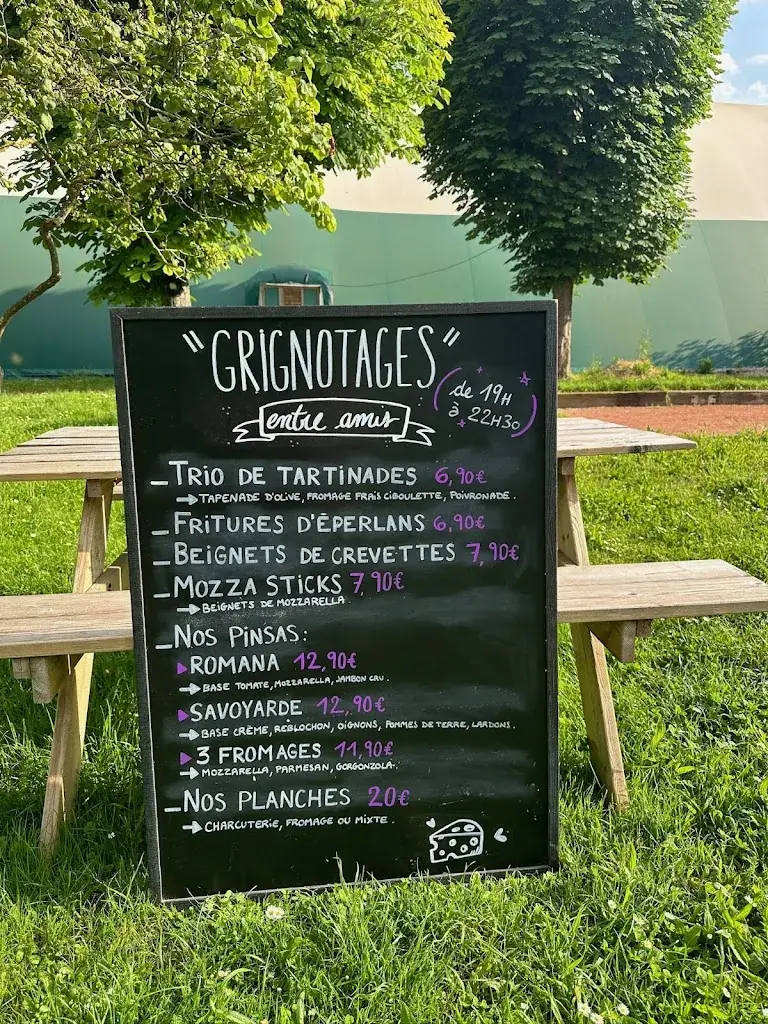 "GRIGNOTAGES"
entre amis
(de 19H
à 22H30)
– TRIO DE TARTINADES 6,90€
→ TAPENADE D'OLIVE, FROMAGE FRAIS CIBOULETTE, POIVRONADE.
– FRITURES D'ÉPERLANS 6,90€
– BEIGNETS DE CREVETTES 7,90€
– MOZZA STICKS 7,90€
→ BEIGNETS DE MOZZARELLA.
– NOS PINSAS:
▸ ROMANA 12,90€
→ BASE TOMATE, MOZZARELLA, JAMBON CRU.
▸ SAVOYARDE 12,90€
→ BASE CRÈME, REBLOCHON, OIGNONS, POMMES DE TERRE, LARDONS.
▸ 3 FROMAGES 11,90€
→ MOZZARELLA, PARMESAN, GORGONZOLA.
– NOS PLANCHES 20€
→ CHARCUTERIE, FROMAGE OU MIXTE.